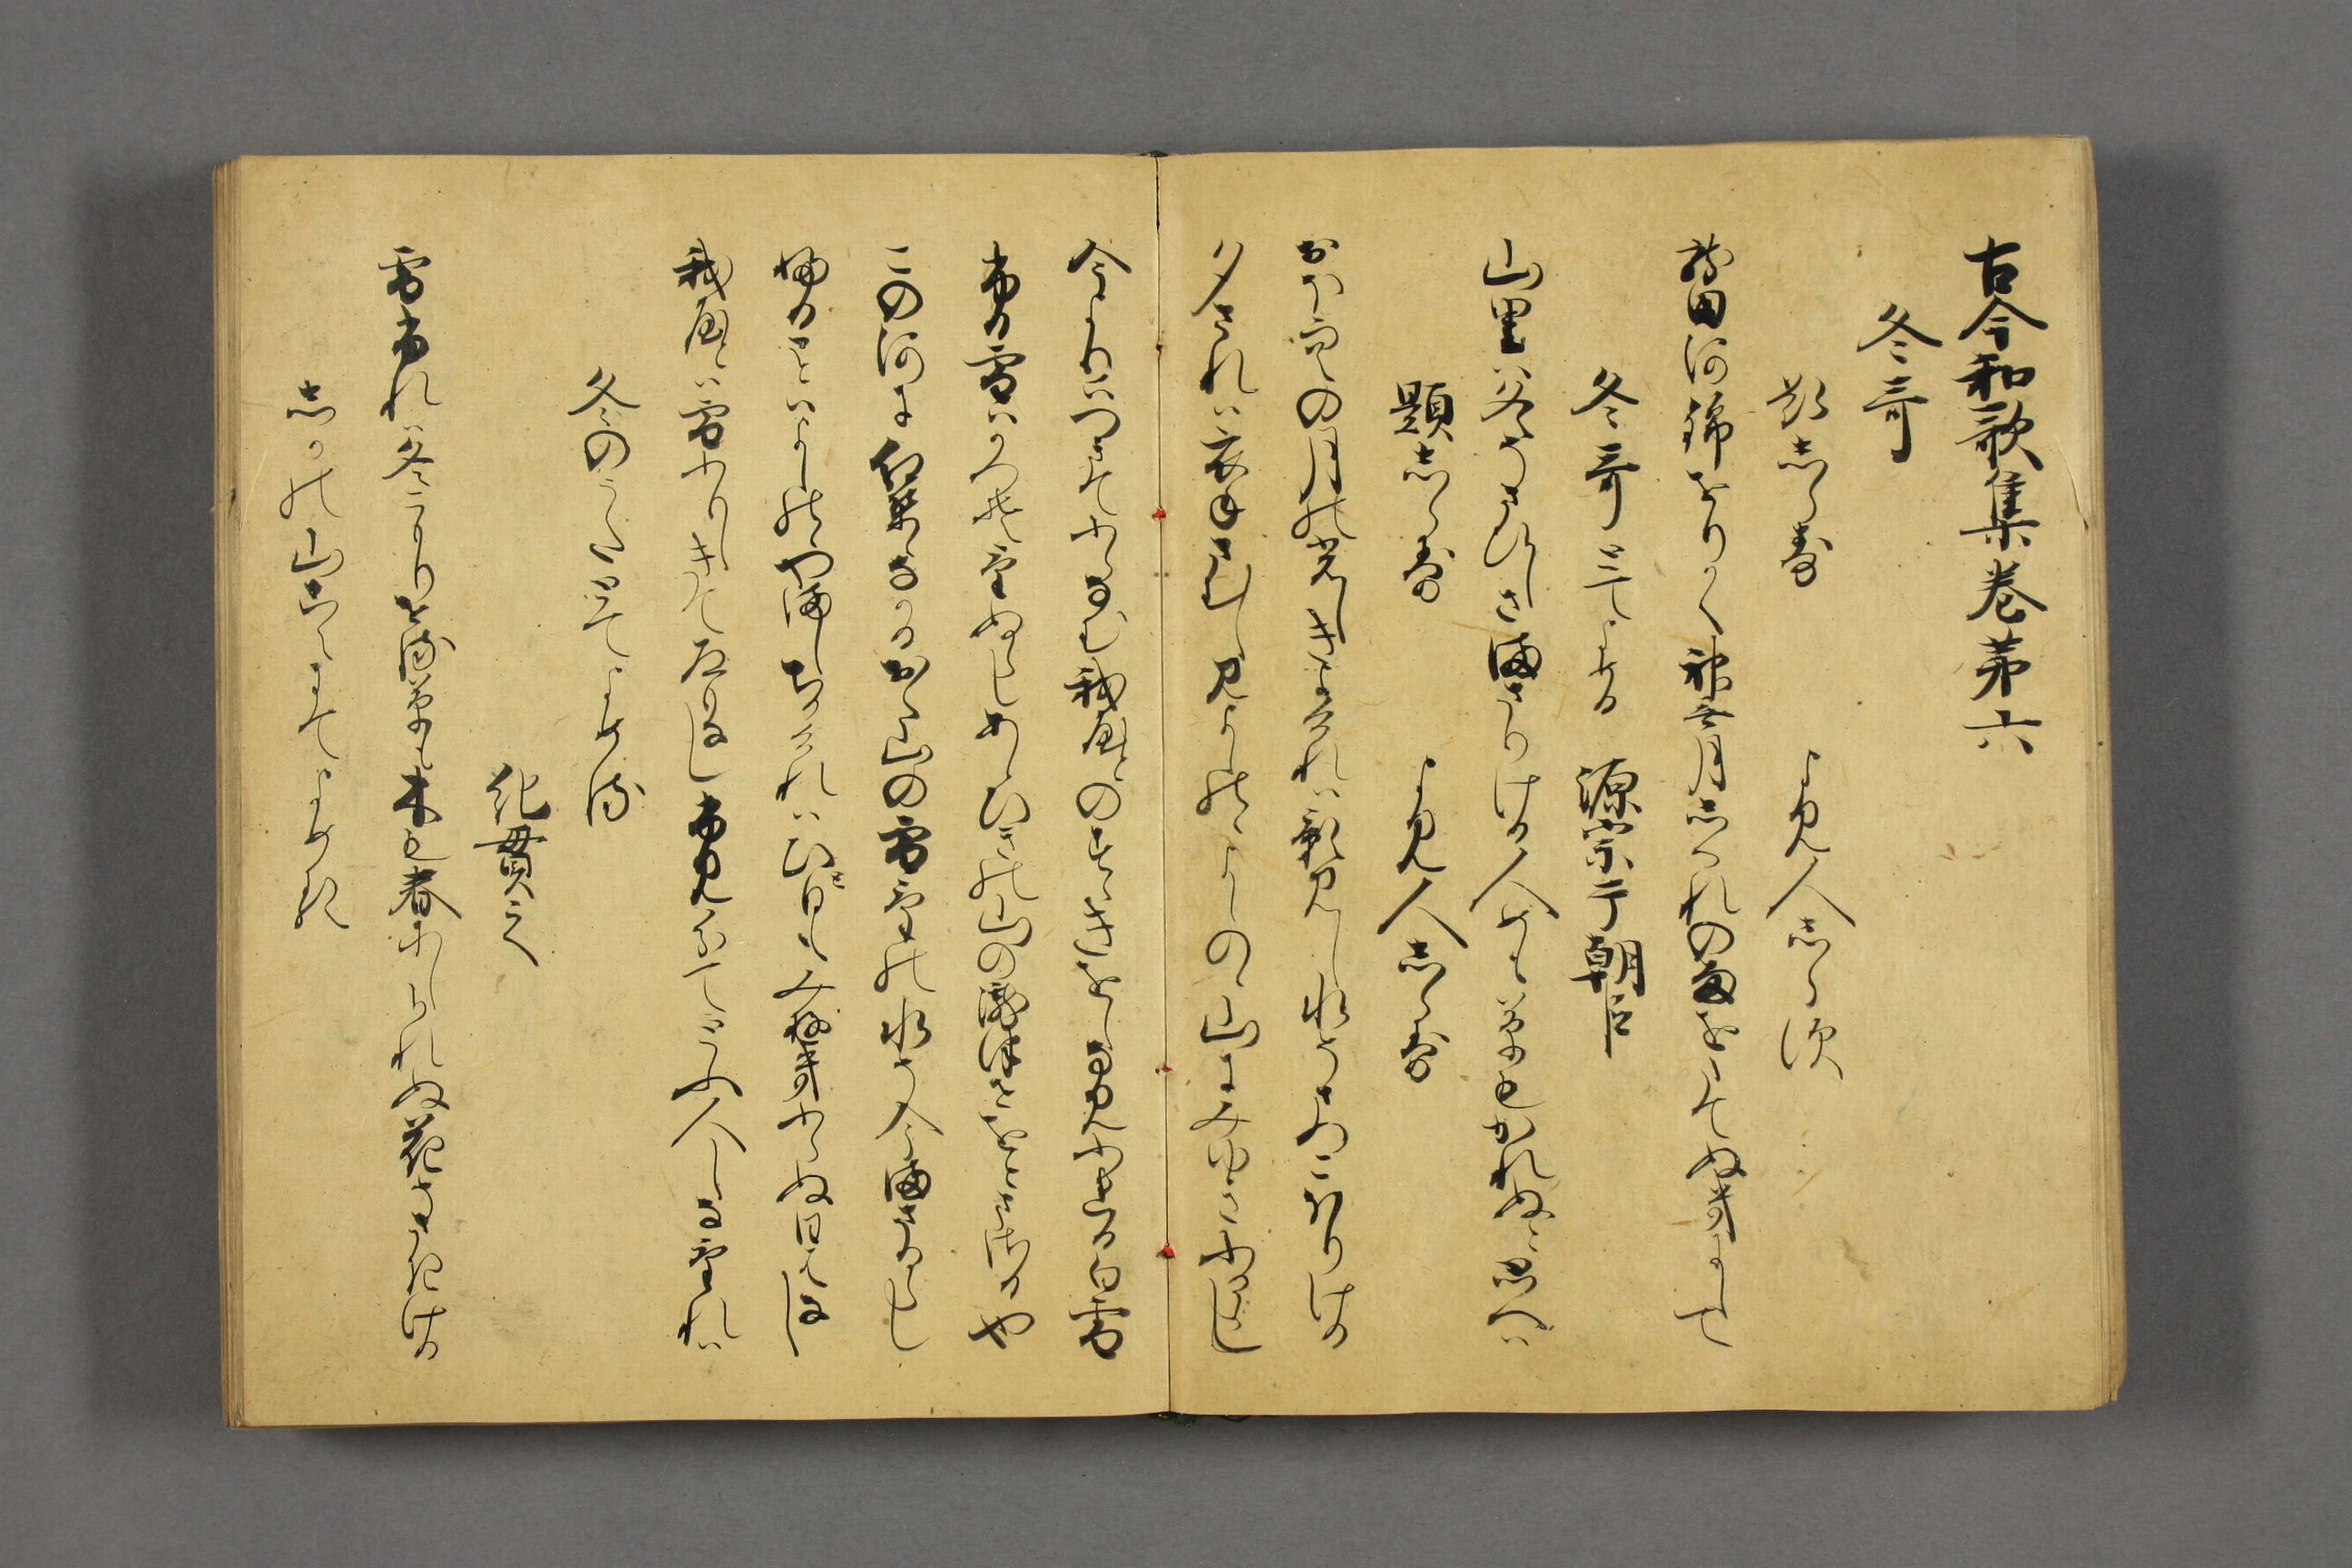 古今和歌集巻第六
冬哥
題しらす
よみ人しらす
龍田河錦をりかく神無月しくれの雨をたてぬきにして
冬哥とてよめる
源宗于朝臣
山里は冬そさひしさまさりける人めも草もかれぬと思へは
題しらす
よみ人しらす
おほそらの月の光しきよけれは影見し水そまつこほりける
夕されは衣手さむしみよしのゝよしのゝ山にみ雪ふるらし
今よりはつきてふらなむ我屋とのすゝきをしなみふれるしら雪
ふる雪はかつそけぬらしあしひきの山のたきつせをとまさるなり
この河に紅葉はなかるおく山の雪けの水そ今まさるらし
故里はよしのゝ山しちかけれはひと日もみ雪ふらぬ日はなし
我屋とは雪ふりしきて道もなしふみわけてとふ人しなけれは
冬のうたとてよめる
紀貫之
雪ふれは冬こもりせる草も木も春にしられぬ花そさきける
しかの山こえにてよめる